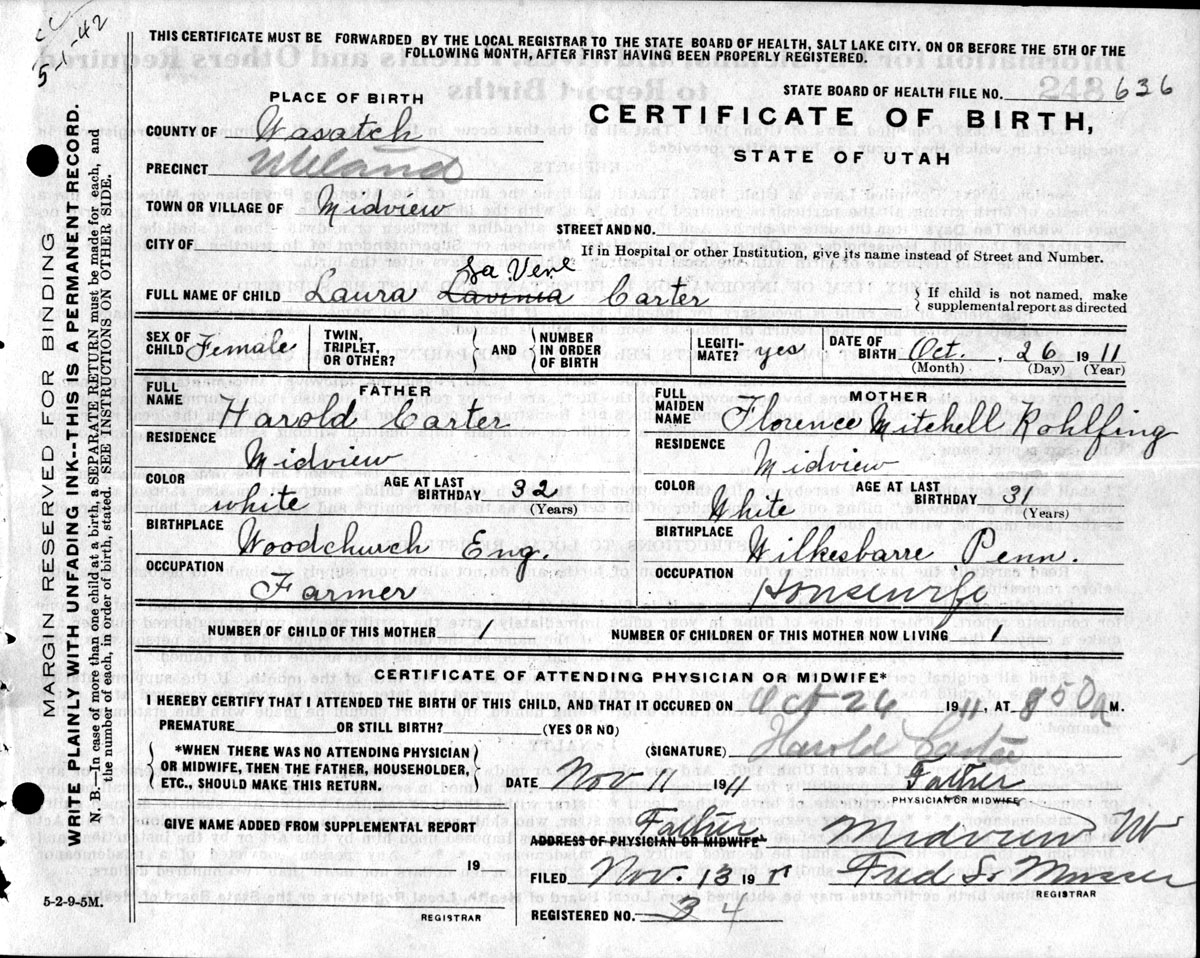 5-1-42
THIS CERTIFICATE MUST BE FORWARDED BY THE LOCAL REGISTRAR TO THE STATE BOARD OF HEALTH, SALT LAKE CITY. ON OR BEFORE THE 5TH OF THE
FOLLOWING MONTH, AFTER FIRST HAVING BEEN PROPERLY REGISTERED.
STATE BOARD OF HEALTH FILE NO. 248 636
PLACE OF BIRTH
CERTIFICATE OF BIRTH,
STATE OF UTAH
COUNTY OF Wasatch
PRECINCT
TOWN OR VILLAGE OF Midview
STREET AND NO.
CITY OF
If in Hospital or other Institution, give its name instead of Street and Number.
La Verl
FULL NAME OF CHILD Laura Lavinia Carter
If child is not named, make
supplemental report as directed
SEX OF CHILD Female TWIN, TRIPLET, OR OTHER? AND NUMBER IN ORDER OF BIRTH LEGITI-MATE? yes DATE OF BIRTH Oct. 26 1911
(Month) (Day) (Year)
FATHER
FULL NAME Harold Carter
RESIDENCE Midview
COLOR white AGE AT LAST BIRTHDAY 32
(Years)
BIRTHPLACE Woodchurch Eng.
OCCUPATION Farmer
MOTHER
FULL MAIDEN NAME Florence Mitchell Rohlfing
RESIDENCE Midview
COLOR White AGE AT LAST BIRTHDAY 31
(Years)
BIRTHPLACE Wilkesbarre Penn.
OCCUPATION Housewife
NUMBER OF CHILD OF THIS MOTHER 1 NUMBER OF CHILDREN OF THIS MOTHER NOW LIVING 1
CERTIFICATE OF ATTENDING PHYSICIAN OR MIDWIFE*
I HEREBY CERTIFY THAT I ATTENDED THE BIRTH OF THIS CHILD, AND THAT IT OCCURED ON Oct 26 1911, AT 850 a M.
PREMATURE OR STILL BIRTH? (YES OR NO)
*WHEN THERE WAS NO ATTENDING PHYSICIAN
OR MIDWIFE, THEN THE FATHER, HOUSEHOLDER,
ETC., SHOULD MAKE THIS RETURN.
(SIGNATURE) Harold Carter
DATE Nov 11 1911 Father
PHYSICIAN OR MIDWIFE
GIVE NAME ADDED FROM SUPPLEMENTAL REPORT
19
REGISTRAR
Father,
ADDRESS OF PHYSICIAN OR MIDWIFE Midview Ut
FILED Nov. 13 1911 Fred L. Musser
REGISTRAR
REGISTERED NO. 34
5-2-9-5M.
MARGIN RESERVED FOR BINDING
WRITE PLAINLY WITH UNFADING INK--THIS IS A PERMANENT RECORD.
N. B.—In case of more than one child at a birth, a SEPARATE RETURN must be made for each, and
the number of each, in order of birth, stated. SEE INSTRUCTIONS ON OTHER SIDE.